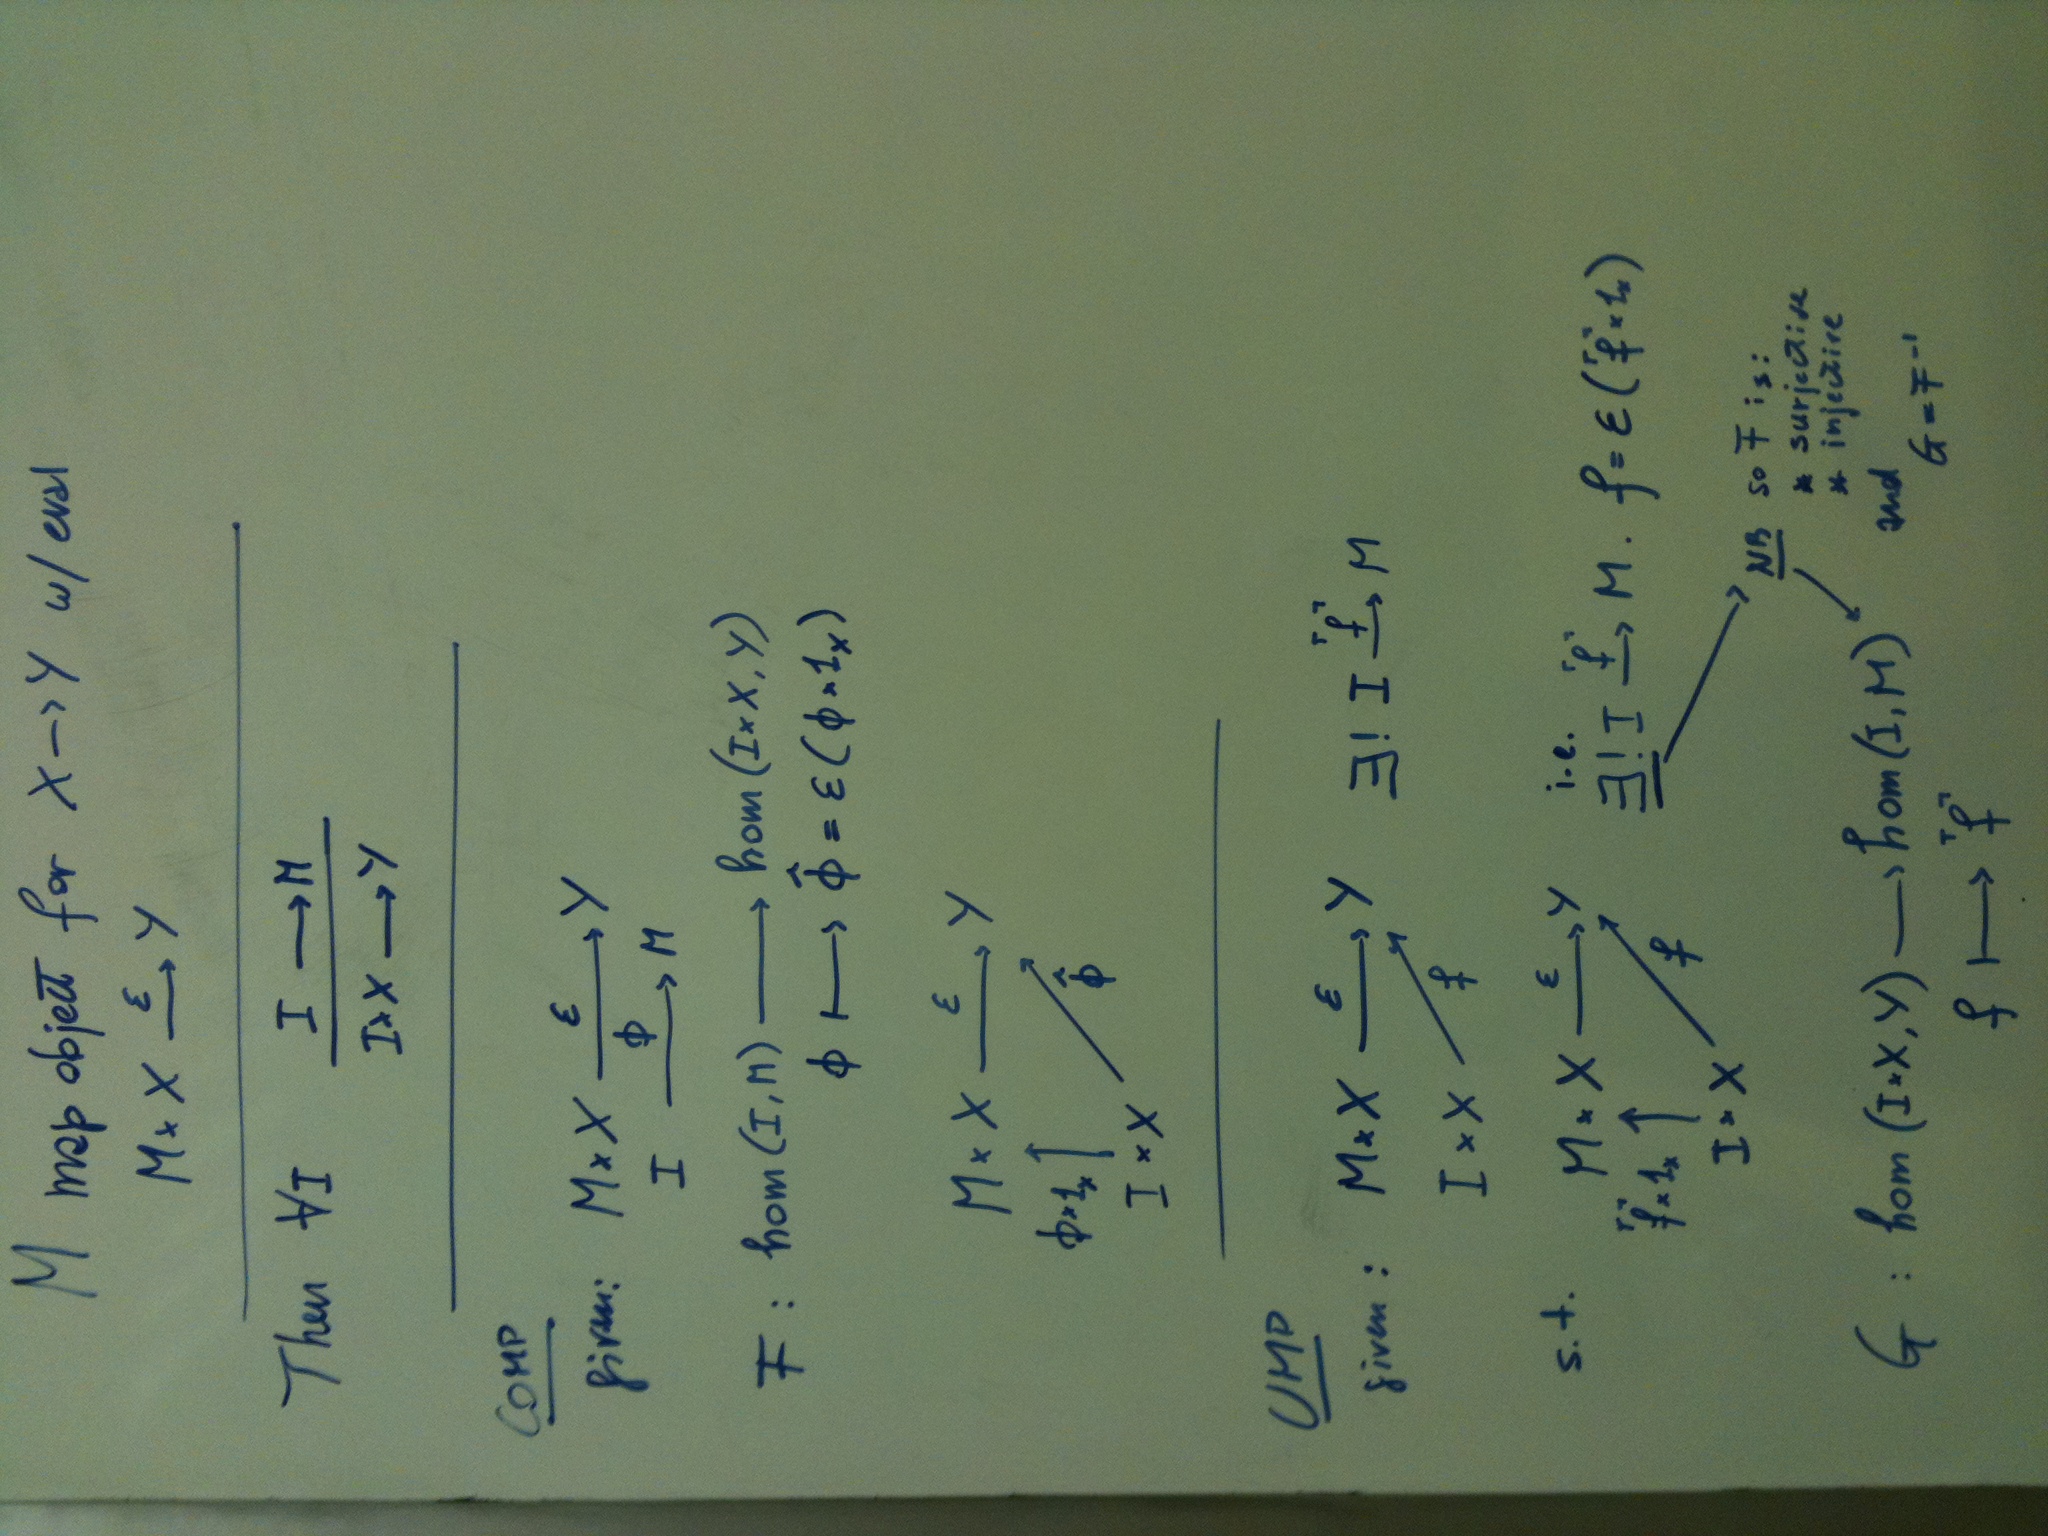 M map object for X → Y w/ eval
M × X —ε→ Y
Then ∀I
I → M
I × X → Y
COMP
given: M × X —ε→ Y
I —ϕ→ M
F : hom (I, M) → hom (I × X, Y)
ϕ ↦ ϕ̂ = ε(ϕ × 1ₓ)
M × X —ε→ Y
ϕ × 1ₓ ↑ ↗ ϕ̂
I × X
UMP
given: M × X —ε→ Y ∃! I —⌜f⌝→ M
I × X ↗ f
s.t. M × X —ε→ Y i.e.
∃! I —⌜f⌝→ M . f = ε(⌜f⌝ × 1ₓ)
⌜f⌝ × 1ₓ ↑ ↗ f
I × X
NB so F is:
* surjective
* injective
and
G = F⁻¹
G : hom (I × X, Y) → hom (I, M)
f ↦ ⌜f⌝